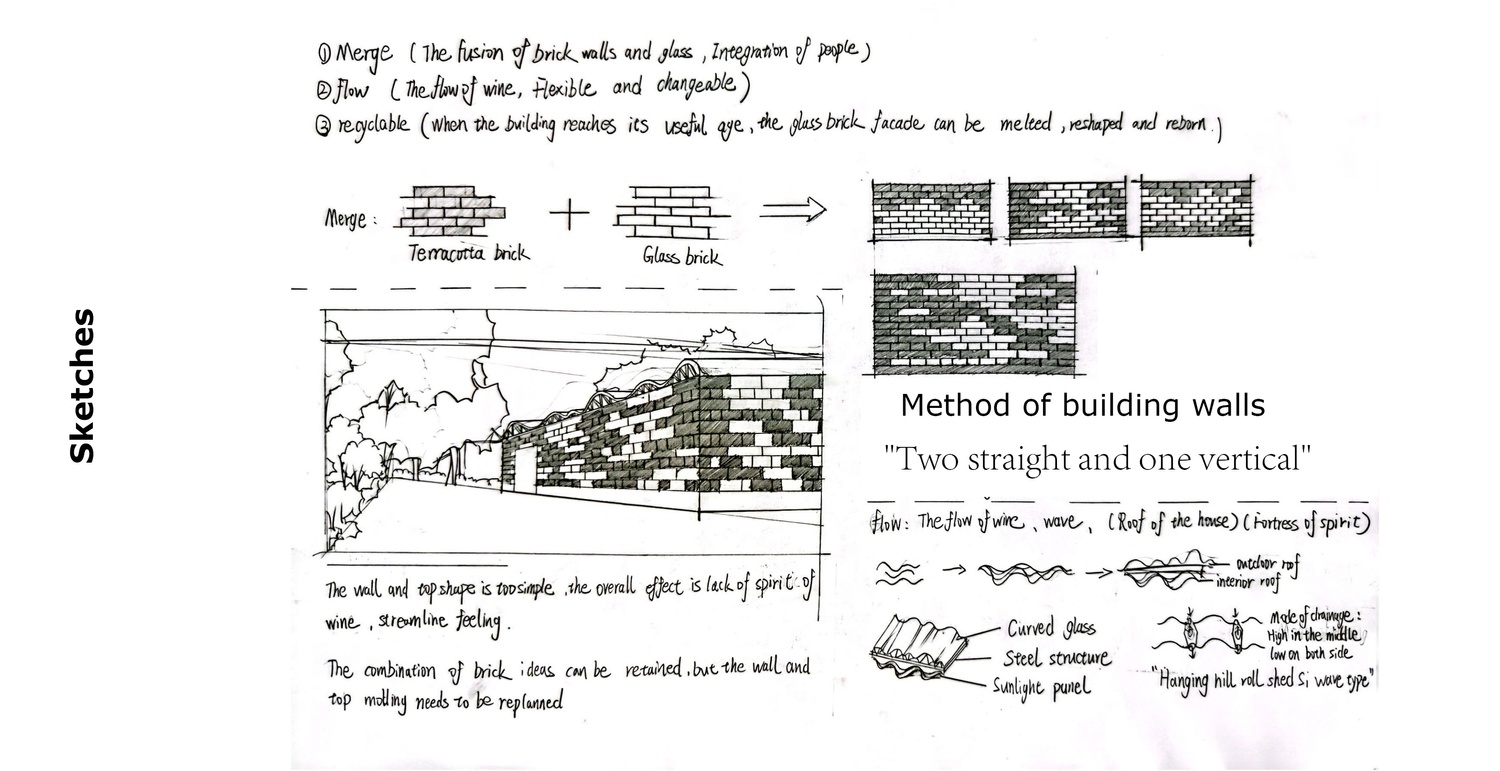 Sketches
① Merge (The fusion of brick walls and glass, Integration of people)
② flow (The flow of wine, Flexible and changeable)
③ recyclable (When the building reaches its useful age, the glass brick facade can be melted, reshaped and reborn.)
Merge:
Terracotta brick
Glass brick
Method of building walls
"Two straight and one vertical"
The wall and top shape is too simple, the overall effect is lack of spirit of
wine, streamline feeling.
The combination of brick ideas can be retained, but the wall and
top molling needs to be replanned
flow: The flow of wine, wave, (Roof of the house) (Fortress of spirit)
outdoor roof
interior roof
Curved glass
Steel structure
Sunlight panel
Mode of drainage:
High in the middle,
low on both side
"Hanging hill roll shed Si wave type"